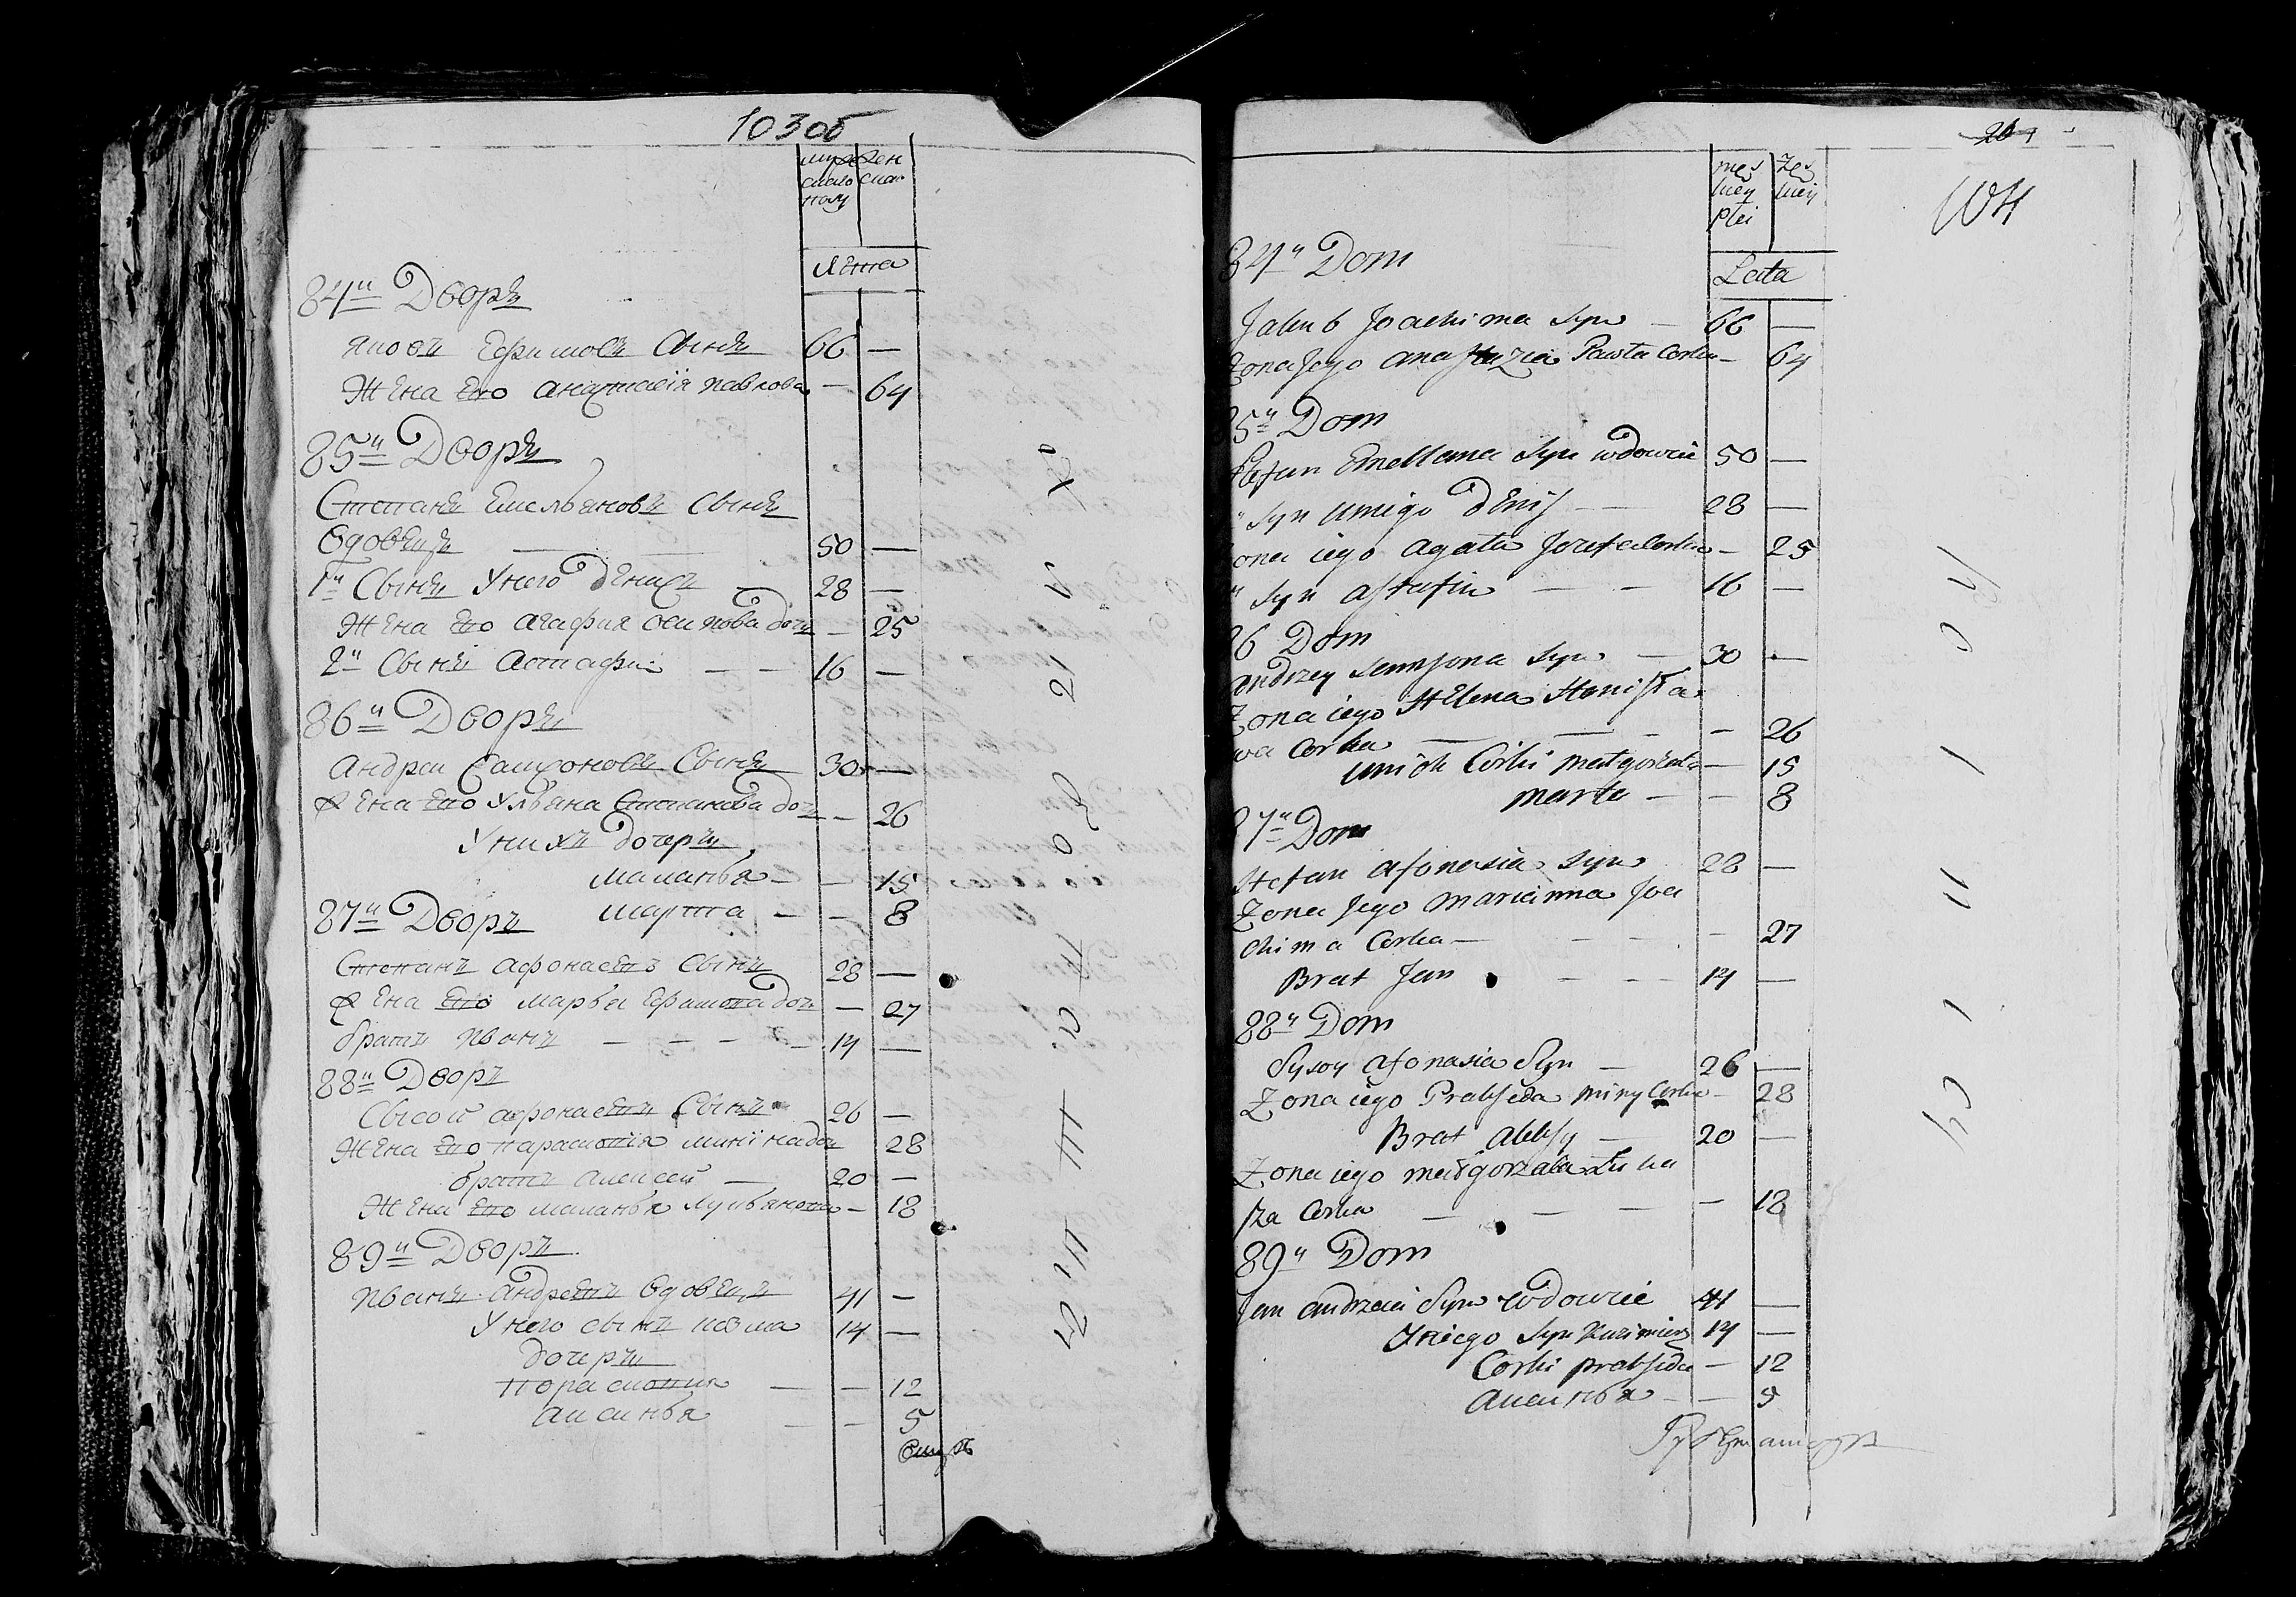 103об
муже
ска
полу
жен
ска
Лѣта
84й Дворъ
Яковъ Ефимовъ Сынъ 66 —
Жена Его анастасія павлова — 64
85й Дворъ
Степанъ Емельяновъ Сынъ
Вдовецъ — 50 —
1й Сынъ У него Денисъ — 28 —
Жена Его агафия осипова дочь — 25
2й Сынъ Астафи — — 16 —
86й Дворъ
Андреи Самсоновъ Сынъ 30 —
Жена Его Ульяна Степанова доч — 26
У нихъ Дочеръ
Маланья — — 15
Марта — — 8
87й Дворъ
Степанъ афонаевъ Сынъ 28 —
Жена Его Марья Ефимова доч — 27
братъ Иванъ — — — — 14 —
88й Дворъ
Сысой афонаевъ Сынъ 26 —
Жена Его парасковия минина доч 28
братъ Алексей — 20 —
Жена Его маланья Лукьянова — 18
89й Дворъ
Иванъ андреевъ Вдовецъ 41 —
У него сынъ козма 14 —
дочеръ
Парасковия — — 12
аксинья — — 5
204
104
męs
kiey
płci
żeń
skiey
Lata
84й Dom
Jakub Joachima Syn — 66 —
Zona Jego anastazia Pawła Corka — 64
85й Dom
Stefan Emelliana Syn wdowiec 50 —
Syn u niego Denis — — 28 —
Zona iego agata Jozefa Corka — 25
Syn astafiu — — 16 —
86 Dom
andrzey samsona Syn — 30 —
Zona iego Helena Stanisła
wa Corka — — — — 26
u nich Corki małgorzata — 15
marta — — 8
87й Dom
Stefan afonasia Syn 28 —
Zona Jego marianna Joa
chima Corka — — — — 27
Brat Jan — — — 14 —
88й Dom
Sysoy afonasia Syn — 26 —
Zona iego Prakseda miny Corka — 28
Brat aleksy — 20 —
Zona iego małgorzata Łuka
sza Corka — — — — 18
89й Dom
Jan andrzeia Syn wdowiec 41 —
U niego Syn Kazimierz 14 —
Corki prakseda — 12
аксинья — — 5